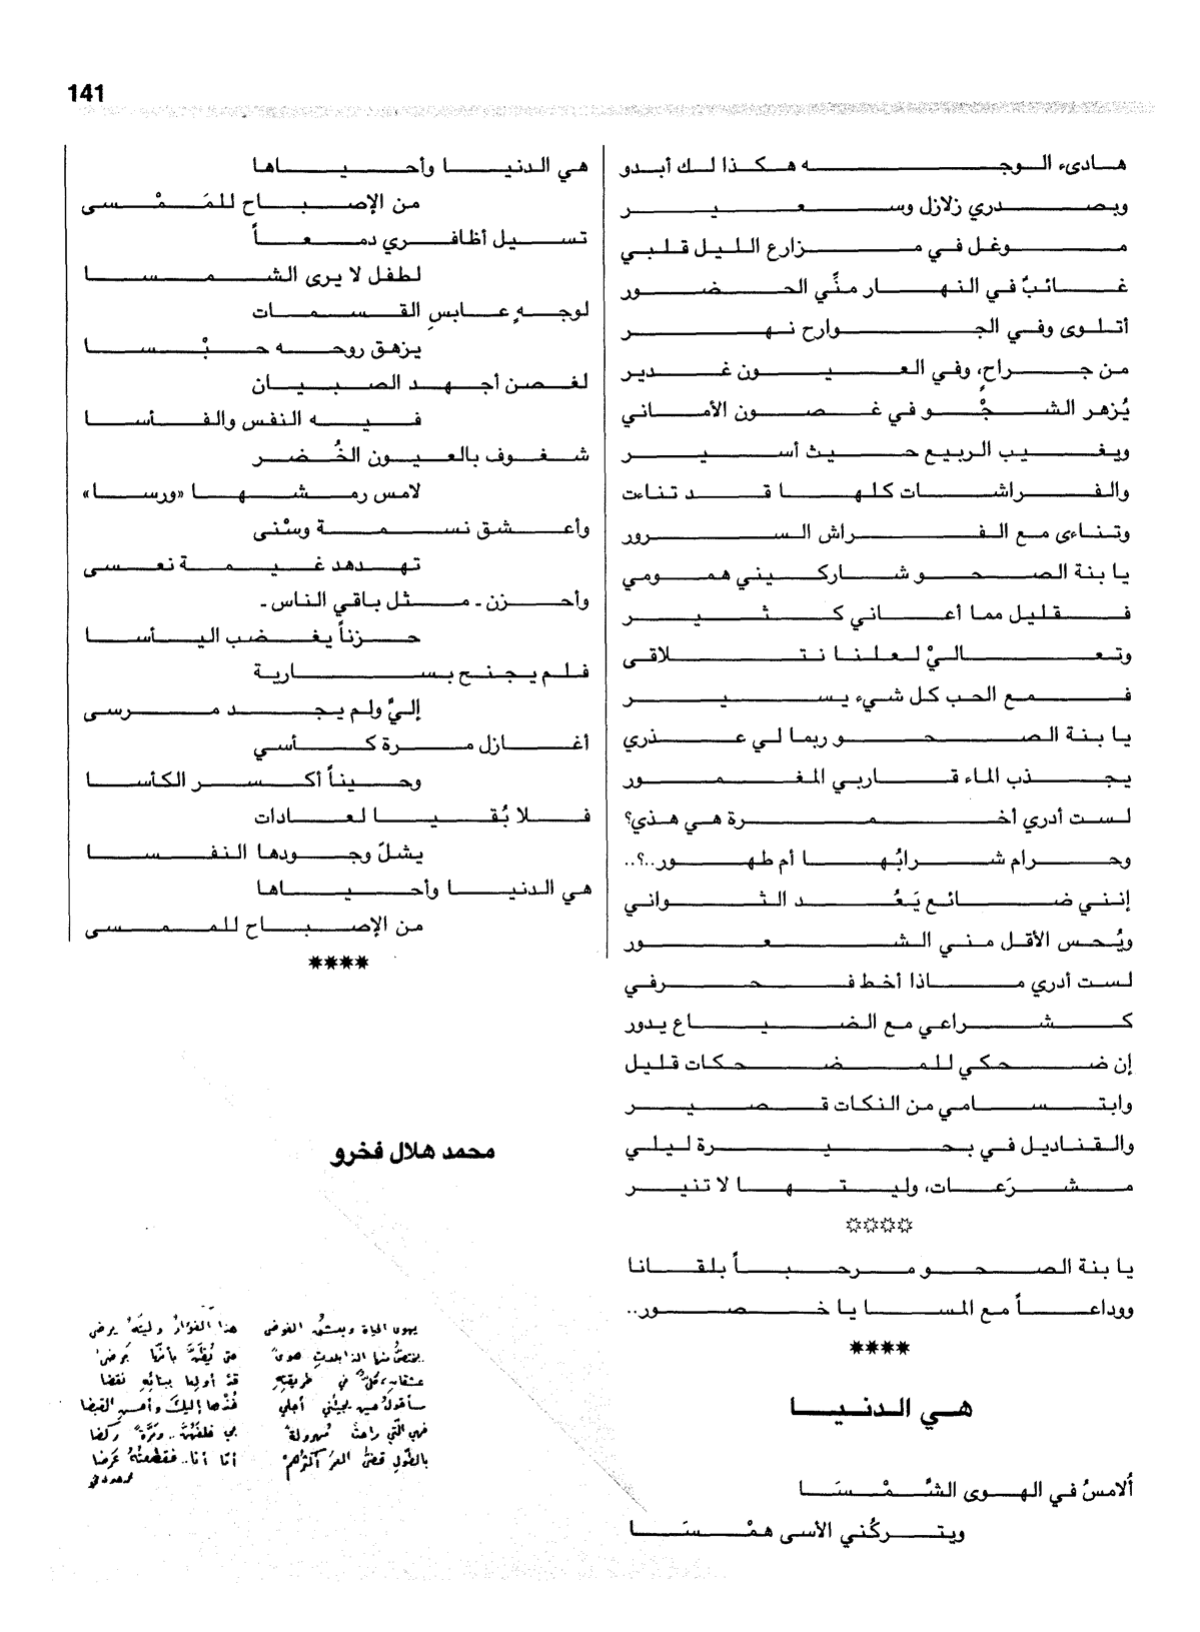 141
هادىء الوجه هكذا لك أبدو
وبصدري زلازل وسعير
موغل في مزارع الليل قلبي
غائبٌ في النهار منّي الحضور
أتلوى وفي الجوارح نهر
من جراحٍ، وفي العيون غدير
يُزهر الشجْو في غصون الأماني
ويغيب الربيع حيث أسير
والفراشات كلها قد تناءت
وتناءى مع الفراش السرور
يا بنة الصحو شاركيني همومي
فقليل مما أعاني كثير
وتعاليْ لعلنا نتلاقى
فمع الحب كل شيء يسير
يا بنة الصحو ربما لي عذري
يجذب الماء قاربي المغمور
لست أدري أخمرة هي هذي؟
وحرام شرابُها أم طهور..؟..
إنني ضائع يَعُد الثواني
ويُحس الأقل مني الشعور
لست أدري ماذا أخط فحرفي
كشراعي مع الضياع يدور
إن ضحكي للمضحكات قليل
وابتسامي من النكات قصير
والقناديل في بحيرة ليلي
مشرَعات، وليتها لا تنير
يا بنة الصحو مرحباً بلقانا
ووداعاً مع المسا يا خصور..
****
هي الدنيا
ألامسُ في الهوى الشَّمْسَا
ويتركُني الأسى همْسَا
هي الدنيا وأحياها
من الإصباح للمَمْسى
تسيل أظافري دمعاً
لطفل لا يرى الشمسا
لوجهٍ عابسِ القسمات
يزهق روحه حبْسا
لغصن أجهد الصبيان
فيه النفس والفأسا
شغوف بالعيون الخُضر
لامس رمشها «ورسا»
وأعشق نسمة وسْنى
تهدهد غيمة نعسى
وأحزن - مثل باقي الناس -
حزناً يغضب اليأسا
فلم يجنح بسارية
إليّ ولم يجد مرسى
أغازل مرة كأسي
وحيناً أكسر الكأسا
فلا بُقيا لعادات
يشلّ وجودها النفسا
هي الدنيا وأحياها
من الإصباح للممسى
****
محمد هلال فخرو
يهوى الحياة ويعشق الفوضى هذا الفؤادُ وليتَهُ يرضى